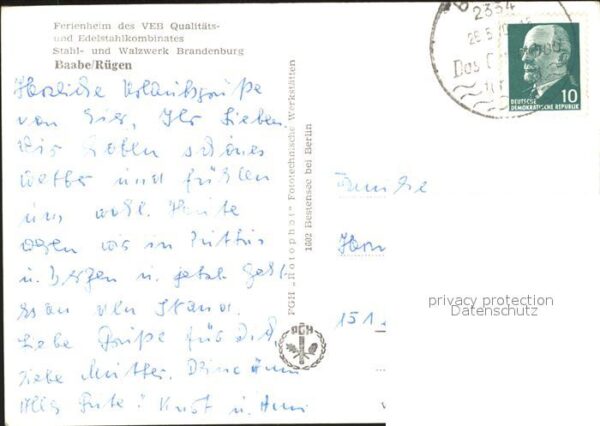 Ferienheim des VEB Qualitäts-
und Edelstahlkombinates
Stahl- und Walzwerk Brandenburg
Baabe/Rügen
Herzliche Urlaubsgrüße
von hier, Ihr Lieben
Wir haben schönes
Wetter und fühlen
uns wohl. Heute
waren wir in Putbus
u. Bergen u. jetzt geht
es an den Strand.
Liebe Grüße für Dich
liebe Mutter.
Alles Gute! Kurt u.
PGH „Rotophot" Fototechnische Werkstätten
1602 Bestensee bei Berlin
PGH
Familie
151
2334
10
DEUTSCHE
DEMOKRATISCHE REPUBLIK
privacy protection
Datenschutz